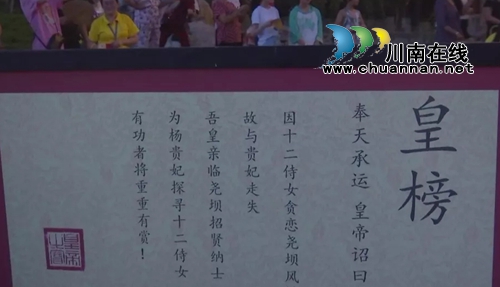 川南在线
www.chuannan.net
皇榜
奉天承运 皇帝诏曰
因十二侍女贪恋尧坝风
故与贵妃走失
吾皇亲临尧坝招贤纳士
为杨贵妃探寻十二侍女
有功者将重重有赏！